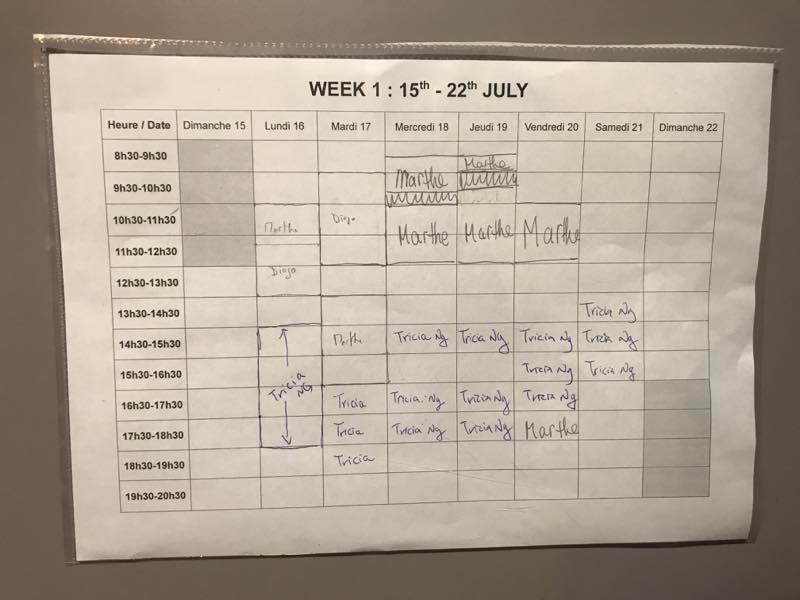 WEEK 1 : 15th - 22th JULY
Heure / Date Dimanche 15 Lundi 16 Mardi 17 Mercredi 18 Jeudi 19 Vendredi 20 Samedi 21 Dimanche 22
8h30-9h30 Marthe
9h30-10h30 Marthe
10h30-11h30 Marthe Diogo
Marthe Marthe Marthe
11h30-12h30
12h30-13h30 Diogo
13h30-14h30 Tricia Ng
14h30-15h30 Marthe Tricia Ng Tricia Ng Tricia Ng Tricia Ng
15h30-16h30 Tricia NG Tricia Ng Tricia Ng
16h30-17h30 Tricia Tricia Ng Tricia Ng Tricia Ng
17h30-18h30 Tricia Tricia Ng Tricia Ng Marthe
18h30-19h30 Tricia
19h30-20h30